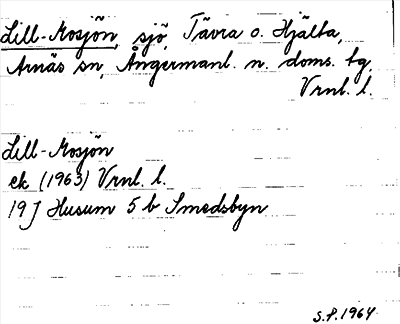 Lill-Mosjön, sjö, Tävra o. Hjälta,
Arnäs sn, Ångermanl. n. doms. tg,
Vrnl. l.
Lill-Mosjön
ek (1963) Vrnl. l.
19J Husum 5 b Smedsbyn
S.P. 1964